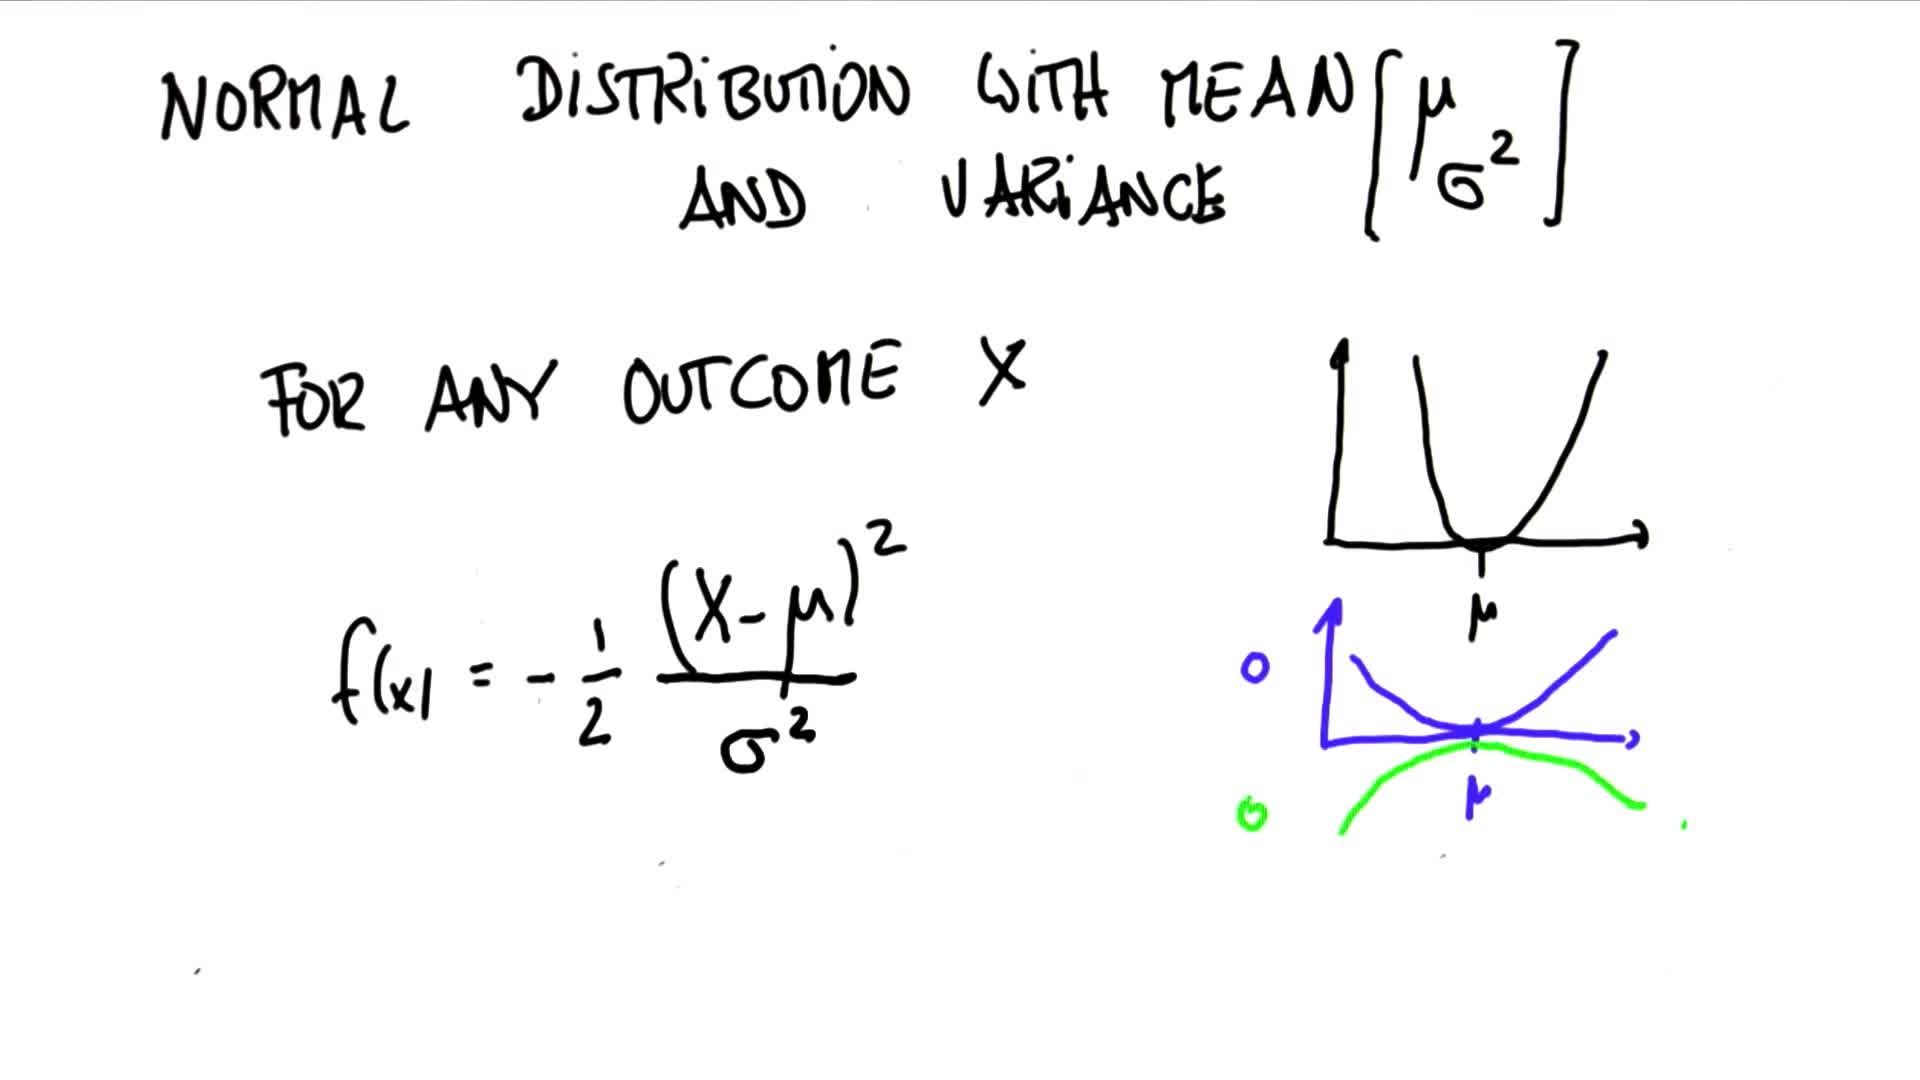 NORMAL DISTRIBUTION WITH MEAN [μ
AND VARIANCE σ²]
FOR ANY OUTCOME X
f(x) = - 1/2 (X-μ)²/σ²
μ
0
μ
0